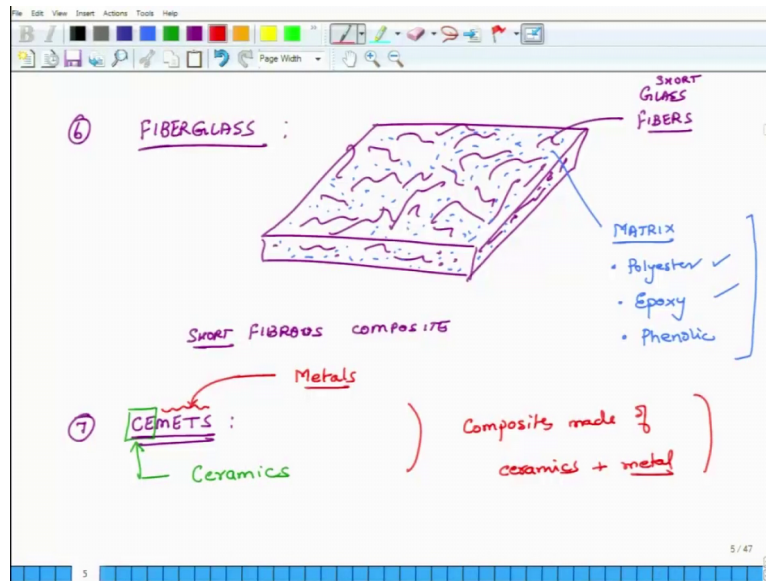 File Edit View Insert Actions Tools Help
B I
Page Width
⑥ FIBERGLASS :
SHORT
GLASS
FIBERS
MATRIX
• Polyester ✓
• Epoxy
• Phenolic
SHORT FIBROUS COMPOSITE
Metals
⑦ CEMETS :
Ceramics
Composites made of
ceramics + metal
5 / 47
5